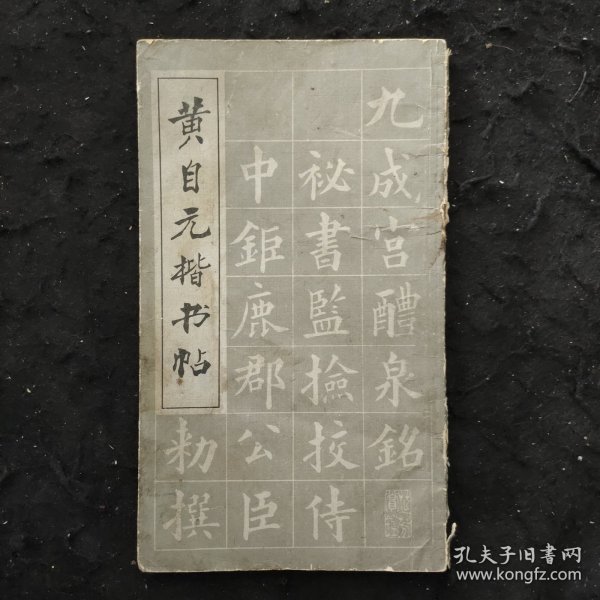 黄自元楷书帖
九成宫醴泉銘
祕書監撿挍侍
中鉅鹿郡公臣
勑撰
孔夫子旧書网
www.kongfz.com